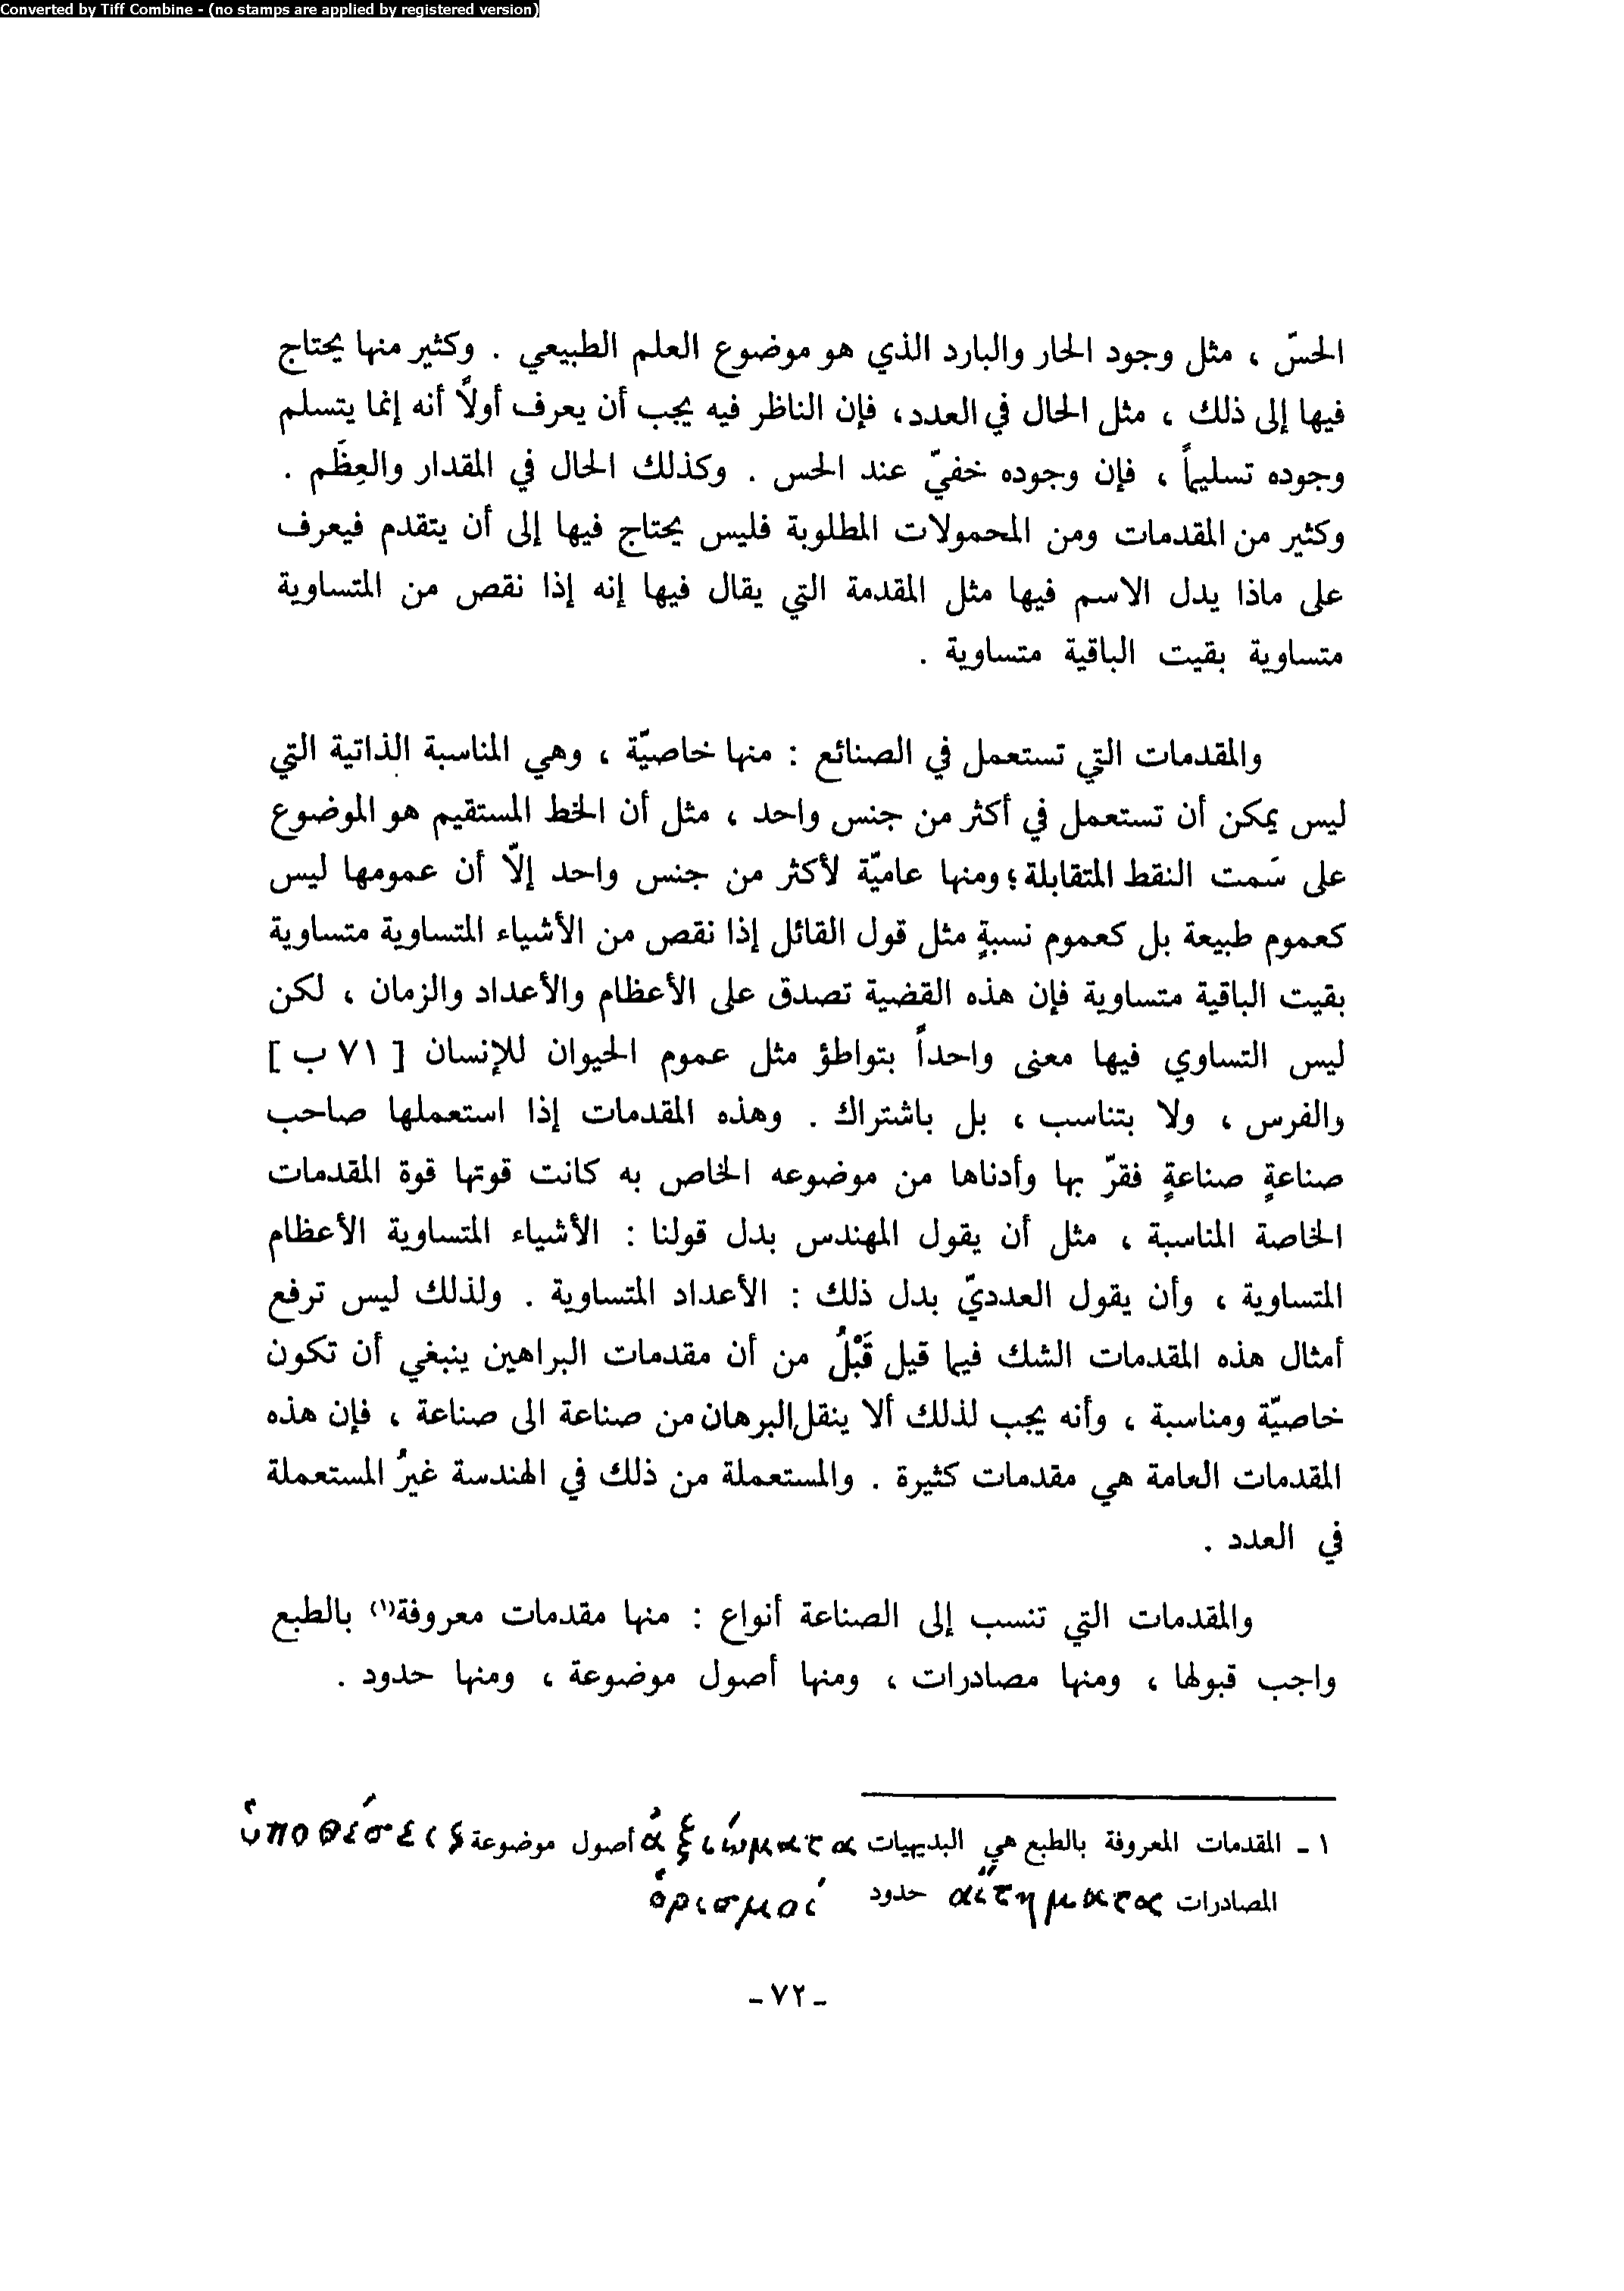 Converted by Tiff Combine - (no stamps are applied by registered version)
الحسّ ، مثل وجود الحار والبارد الذي هو موضوع العلم الطبيعي . وكثير منها يحتاج
فيها إلى ذلك ، مثل الحال في العدد، فإن الناظر فيه يجب أن يعرف أولاً أنه إنما يتسلم
وجوده تسليماً ، فإن وجوده خفيّ عند الحس . وكذلك الحال في المقدار والعِظَم .
وكثير من المقدمات ومن المحمولات المطلوبة فليس يحتاج فيها إلى أن يتقدم فيعرف
على ماذا يدل الاسم فيها مثل المقدمة التي يقال فيها إنه إذا نقص من المتساوية
متساوية بقيت الباقية متساوية .
والمقدمات التي تستعمل في الصنائع : منها خاصيّة ، وهي المناسبة الذاتية التي
ليس يمكن أن تستعمل في أكثر من جنس واحد ، مثل أن الخط المستقيم هو الموضوع
على سَمت النقط المتقابلة؛ ومنها عاميّة لأكثر من جنس واحد إلّا أن عمومها ليس
كعموم طبيعة بل كعموم نسبةٍ مثل قول القائل إذا نقص من الأشياء المتساوية متساوية
بقيت الباقية متساوية فإن هذه القضية تصدق على الأعظام والأعداد والزمان ، لكن
ليس التساوي فيها معنى واحداً بتواطؤ مثل عموم الحيوان للإنسان [ ٧١ ب ]
والفرس ، ولا بتناسب ، بل باشتراك . وهذه المقدمات إذا استعملها صاحب
صناعةٍ صناعةٍ فقرّ بها وأدناها من موضوعه الخاص به كانت قوتها قوة المقدمات
الخاصة المناسبة ، مثل أن يقول المهندس بدل قولنا : الأشياء المتساوية الأعظام
المتساوية ، وأن يقول العدديّ بدل ذلك : الأعداد المتساوية . ولذلك ليس ترفع
أمثال هذه المقدمات الشك فيما قيل قَبْلُ من أن مقدمات البراهين ينبغي أن تكون
خاصيّة ومناسبة ، وأنه يجب لذلك ألا ينقل البرهان من صناعة الى صناعة ، فإن هذه
المقدمات العامة هي مقدمات كثيرة . والمستعملة من ذلك في الهندسة غيرُ المستعملة
في العدد .
والمقدمات التي تنسب إلى الصناعة أنواع : منها مقدمات معروفة(١) بالطبع
واجب قبولها ، ومنها مصادرات ، ومنها أصول موضوعة ، ومنها حدود .
١ ـ المقدمات المعروفة بالطبع هي البديهيات ἀξιώματα أصول موضوعة ὑποθέσεις
المصادرات αἰτήματα حدود ὁρισμοί
ـ ٧٢ ـ